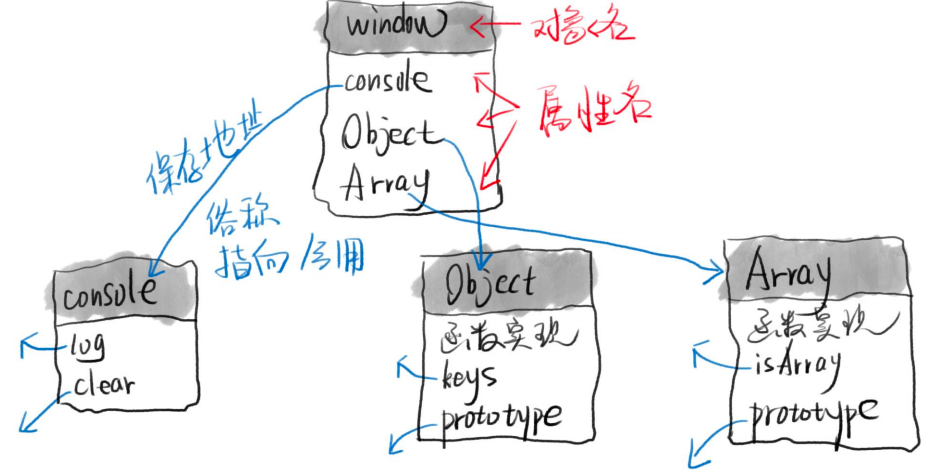 window
对象名
console
Object
属性名
Array
保存地址
俗称
指向/引用
console
log
clear
Object
函数实现
keys
prototype
Array
函数实现
isArray
prototype